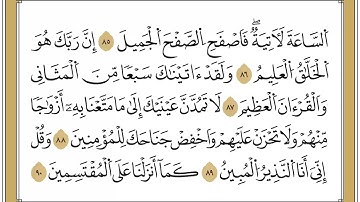 ٱلسَّاعَةَ لَأٓتِيَةٞۖ فَٱصۡفَحِ ٱلصَّفۡحَ ٱلۡجَمِيلَ ٨٥ إِنَّ رَبَّكَ هُوَ
ٱلۡخَلَّٰقُ ٱلۡعَلِيمُ ٨٦ وَلَقَدۡ ءَاتَيۡنَٰكَ سَبۡعٗا مِّنَ ٱلۡمَثَانِي
وَٱلۡقُرۡءَانَ ٱلۡعَظِيمَ ٨٧ لَا تَمُدَّنَّ عَيۡنَيۡكَ إِلَىٰ مَا مَتَّعۡنَا بِهِۦٓ أَزۡوَٰجٗا
مِّنۡهُمۡ وَلَا تَحۡزَنۡ عَلَيۡهِمۡ وَٱخۡفِضۡ جَنَاحَكَ لِلۡمُؤۡمِنِينَ ٨٨ وَقُلۡ
إِنِّيٓ أَنَا ٱلنَّذِيرُ ٱلۡمُبِينُ ٨٩ كَمَآ أَنزَلۡنَا عَلَى ٱلۡمُقۡتَسِمِينَ ٩٠